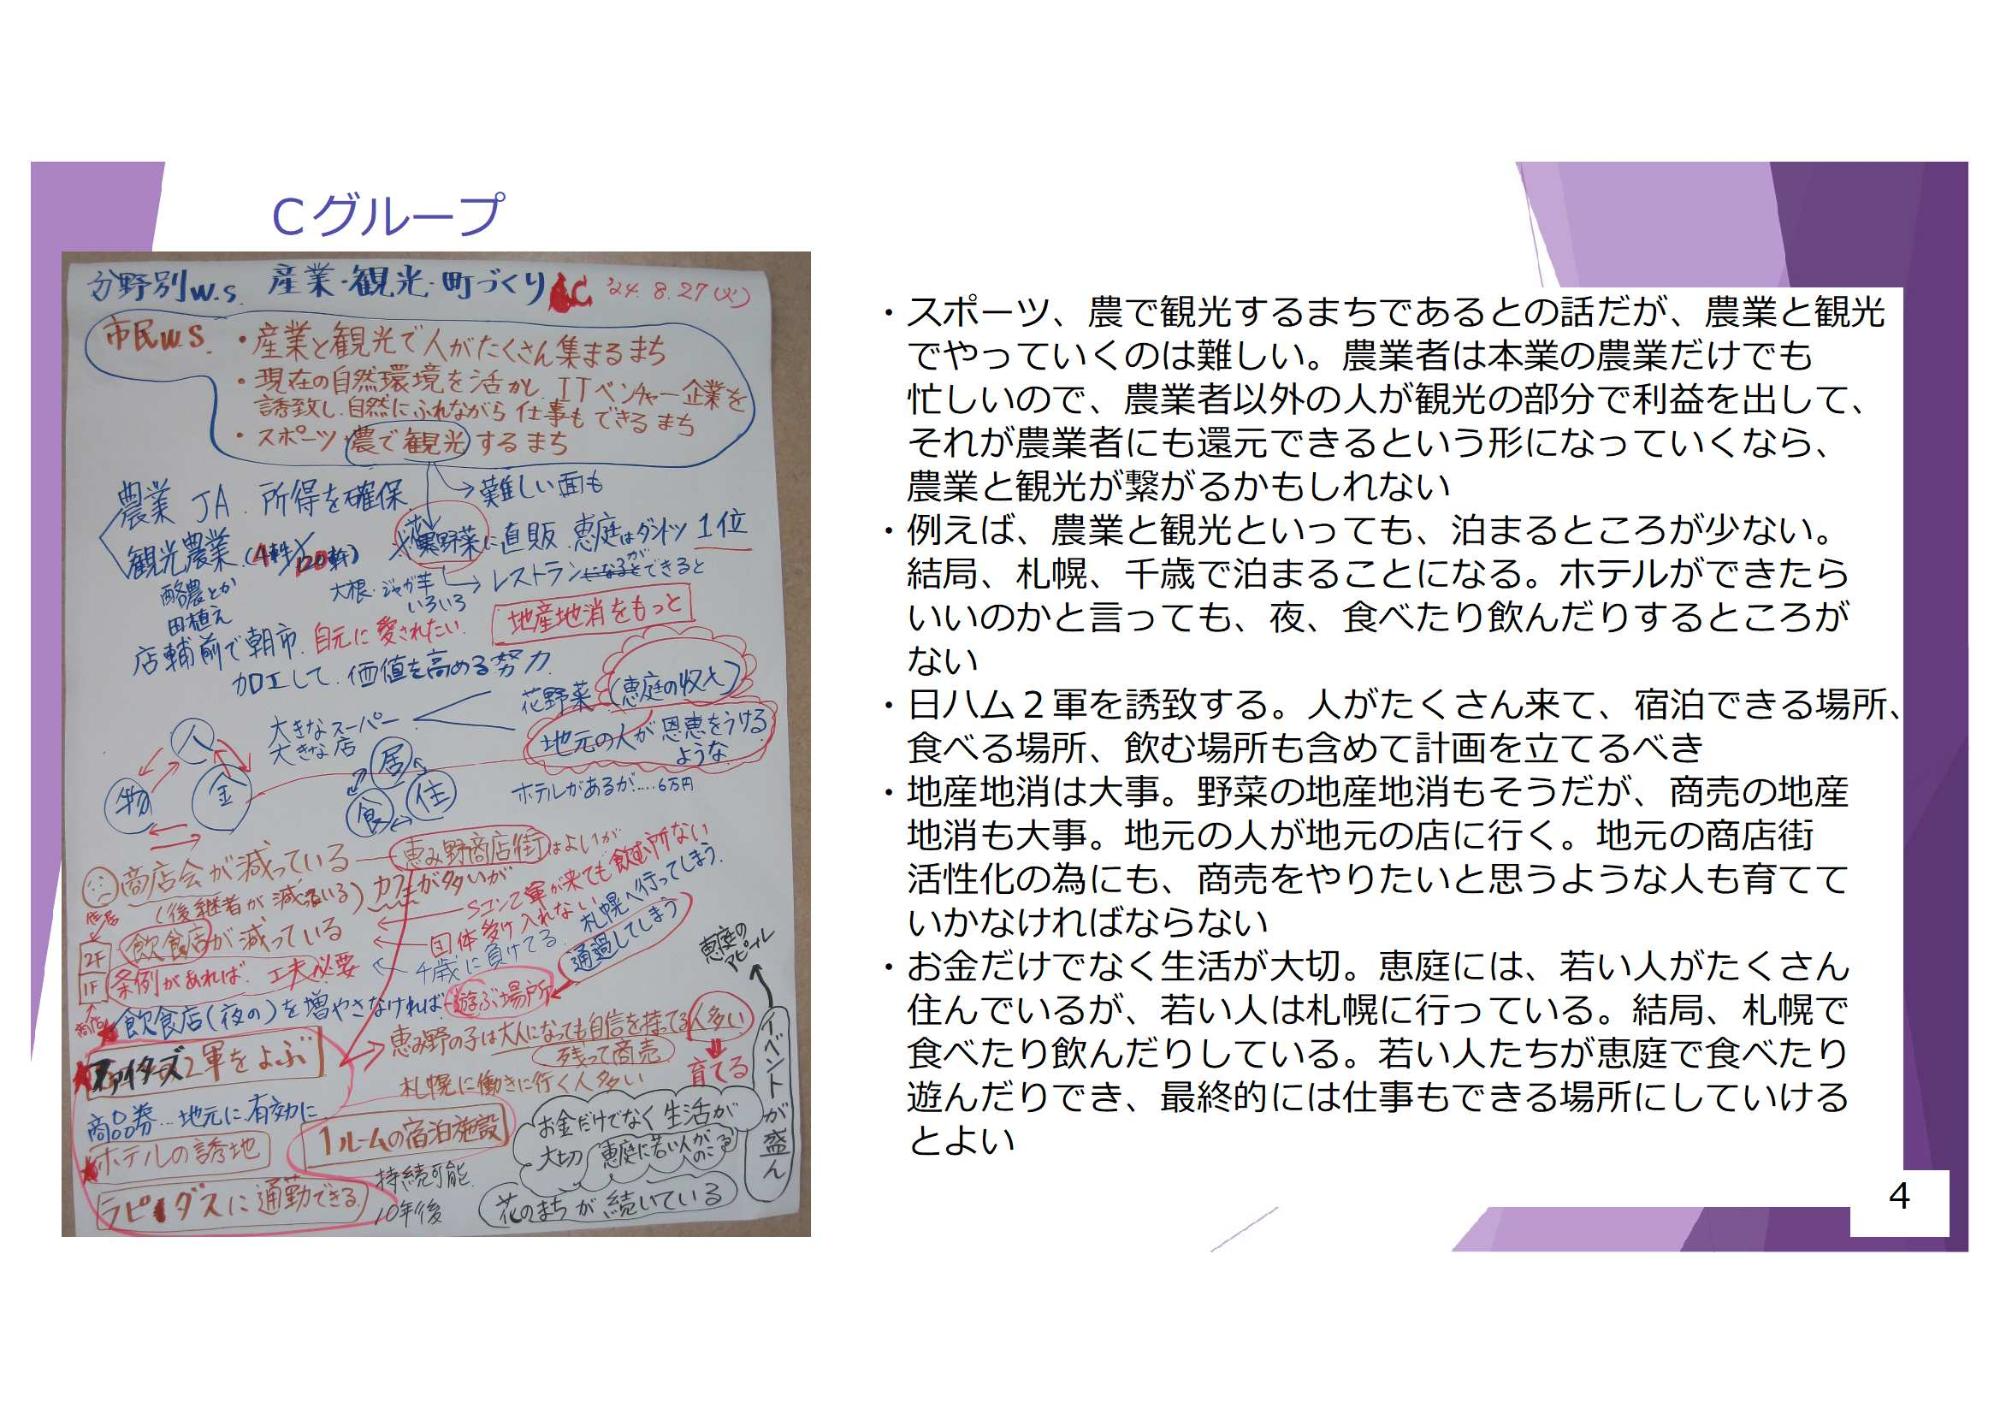 Cグループ
分野別w.s. 産業・観光・町づくり C '24. 8. 27(火)
市民w.s.
・産業と観光で人がたくさん集まるまち
・現在の自然環境を活かし ITベンチャー企業を
誘致し、自然にふれながら 仕事もできるまち
・スポーツ 農で観光するまち
農業 JA 所得を確保
難しい面も
観光農業 (4軒/120軒)
花野菜に直販 恵庭はダントツ 1位
酪農とか
田植え
大根・ジャガ芋
いろいろ
レストランができると
地産地消をもっと
店舗前で朝市 自元に愛されたい
加工して、価値を高める努力
花野菜 (恵庭の収入)
地元の人が恩恵をうける
ような
大きなスーパー
大きな店
人
物
金
居
食
住
ホテルがあるが‥‥6万円
商店会が減っている
恵み野商店街はよいが
(後継者が減っている) カフェが多いが
Sコン2軍が来ても飲む所ない
飲食店が減っている
団体受け入れない
札幌へ行ってしまう
住居
2F
1F
商店
条例があれば 工夫必要
千歳に負けてる
通過してしまう
恵庭の
アピール
飲食店(夜の)を増やさなければ 遊ぶ場所
恵み野の子は大人になっても自信を持てる人多い
残って商売
育てる
ファイターズ2軍をよぶ
札幌に働きに行く人多い
イベントが盛ん
商品券…地元に有効に
1ルームの宿泊施設
お金だけでなく生活が
大切 恵庭に若い人が
のこる
ホテルの誘地
持続可能
10年後
ラピダスに通勤できる
花のまちが続いている
・スポーツ、農で観光するまちであるとの話だが、農業と観光
でやっていくのは難しい。農業者は本業の農業だけでも
忙しいので、農業者以外の人が観光の部分で利益を出して、
それが農業者にも還元できるという形になっていくなら、
農業と観光が繋がるかもしれない
・例えば、農業と観光といっても、泊まるところが少ない。
結局、札幌、千歳で泊まることになる。ホテルができたら
いいのかと言っても、夜、食べたり飲んだりするところが
ない
・日ハム２軍を誘致する。人がたくさん来て、宿泊できる場所、
食べる場所、飲む場所も含めて計画を立てるべき
・地産地消は大事。野菜の地産地消もそうだが、商売の地産
地消も大事。地元の人が地元の店に行く。地元の商店街
活性化の為にも、商売をやりたいと思うような人も育てて
いかなければならない
・お金だけでなく生活が大切。恵庭には、若い人がたくさん
住んでいるが、若い人は札幌に行っている。結局、札幌で
食べたり飲んだりしている。若い人たちが恵庭で食べたり
遊んだりでき、最終的には仕事もできる場所にしていける
とよい
4